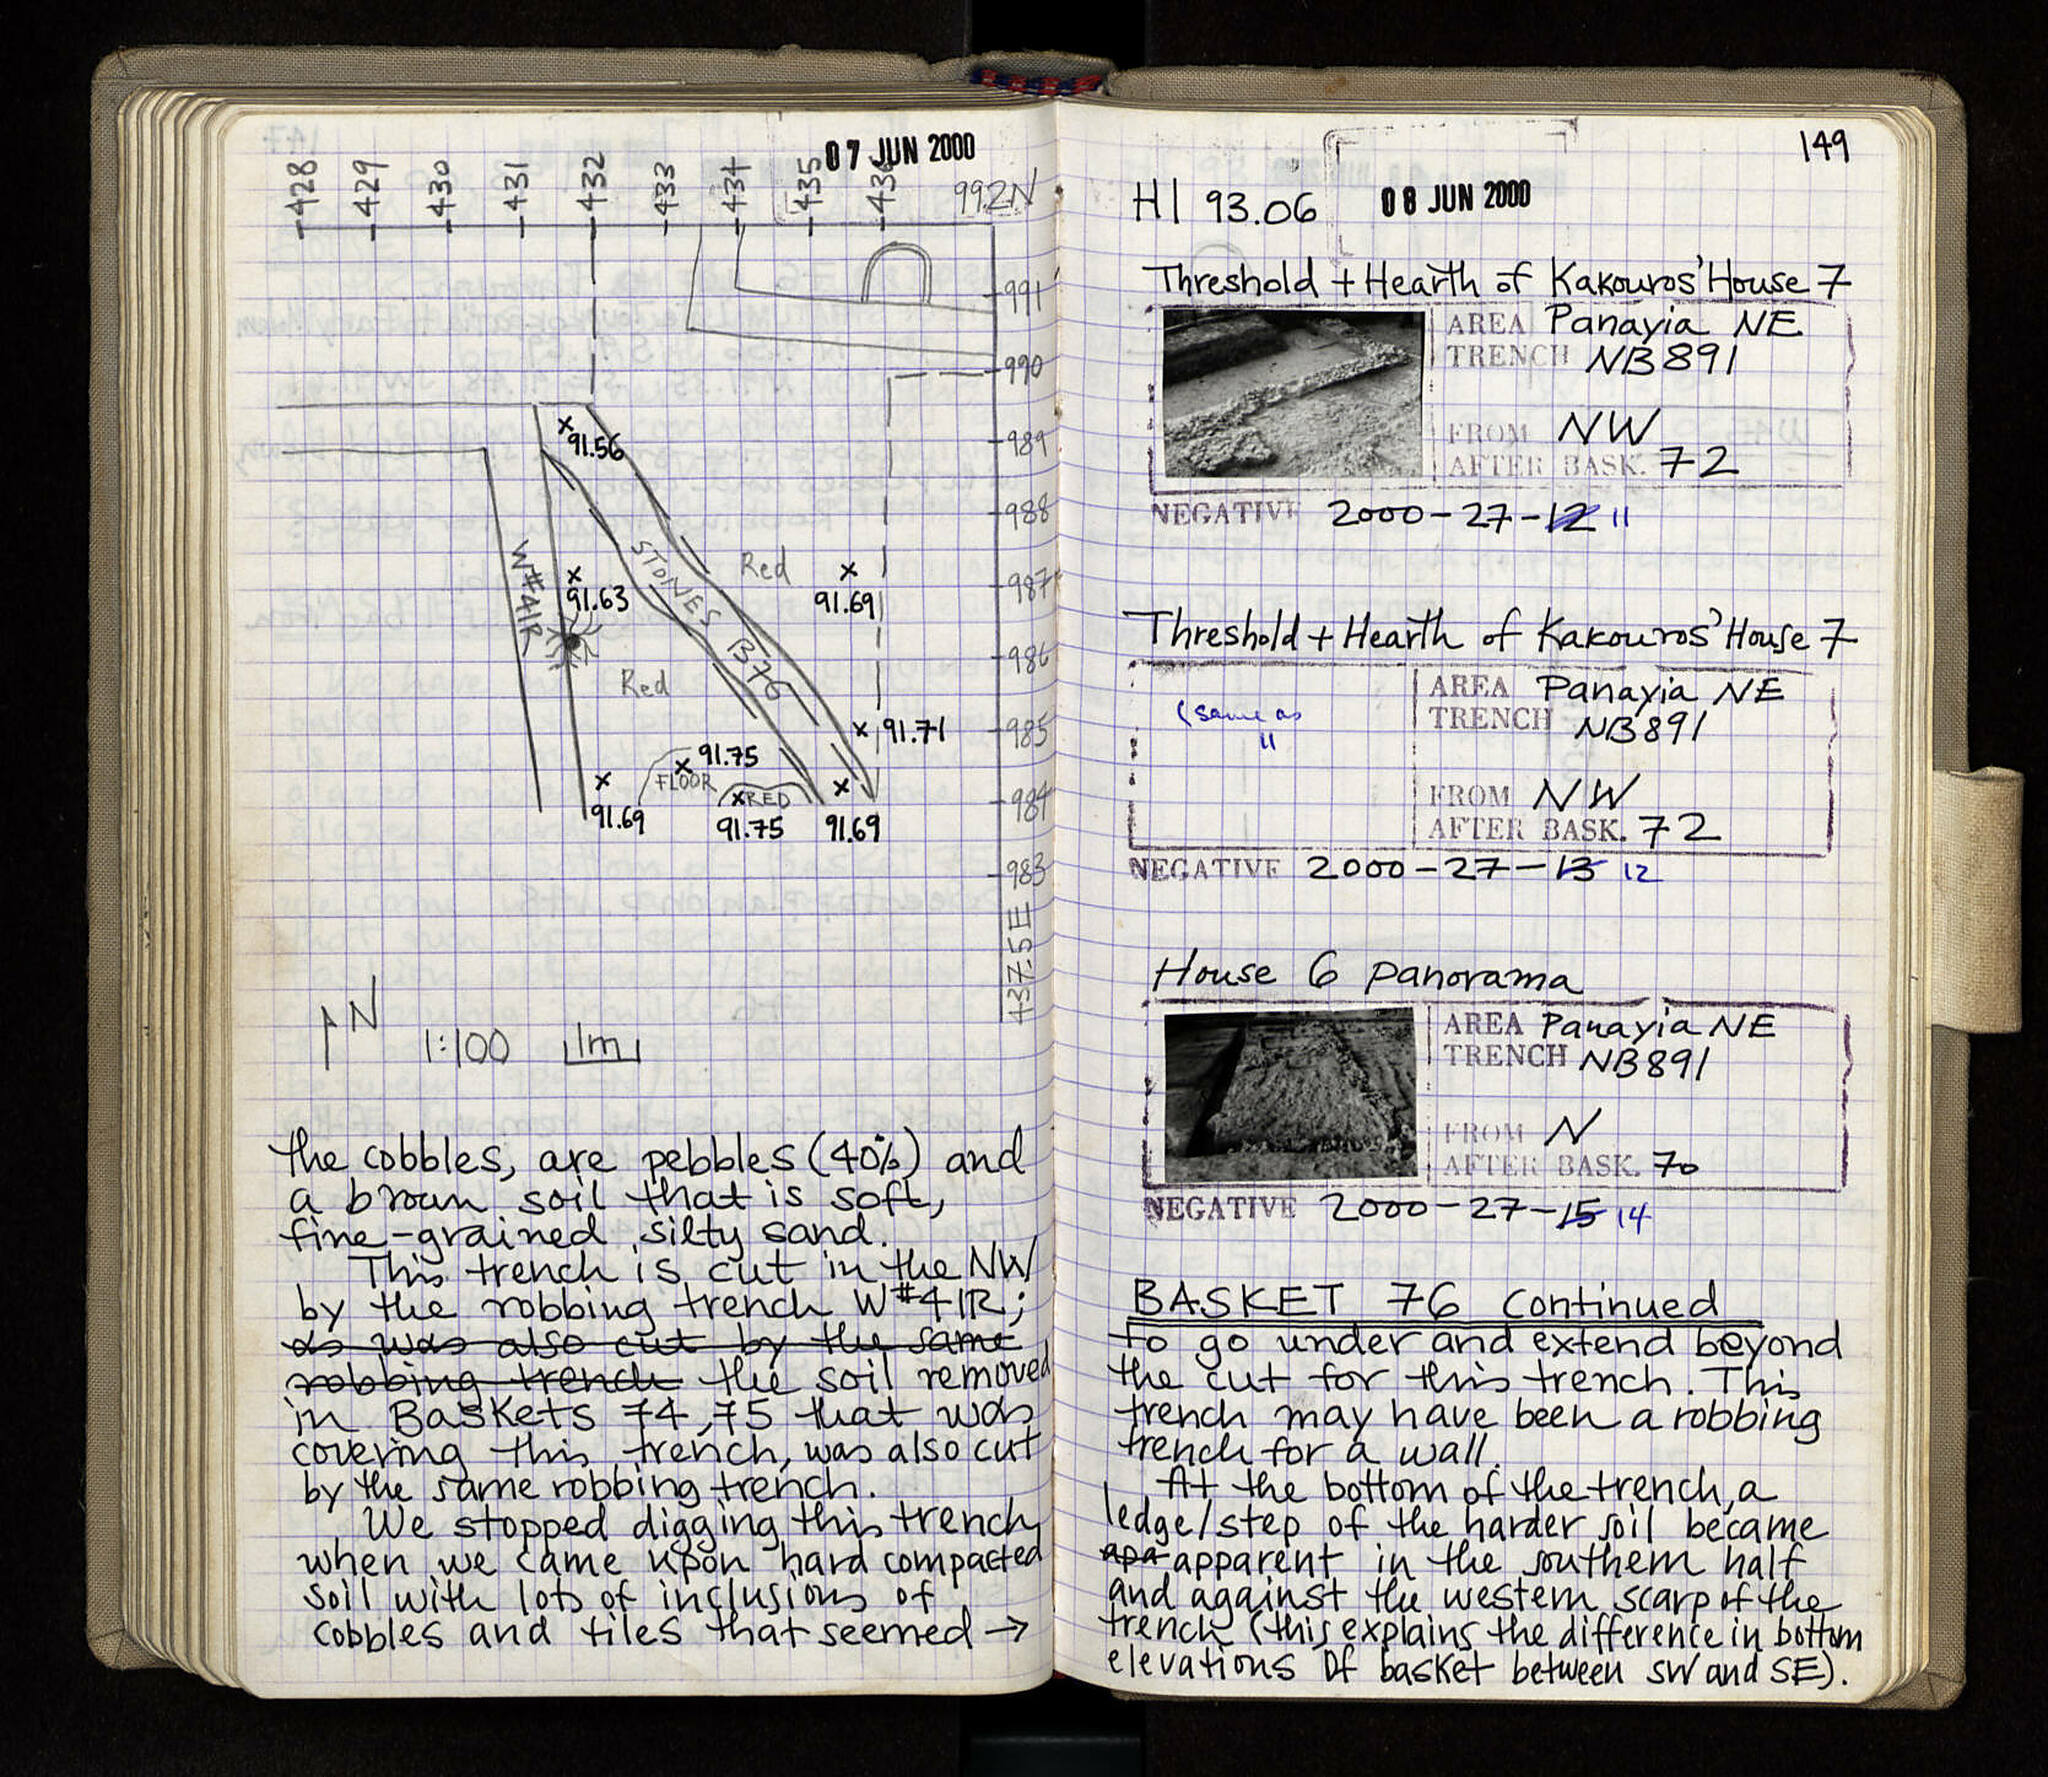 07 JUN 2000
428 429 430 431 432 433 434 435 436 992N
991
990
989
91.56
988
STONES
Red
987
W#41R
91.63
91.69
986
B76
Red
985
91.71
91.75
FLOOR
RED
984
91.69
91.75
91.69
983
437.5E
N
1:100
1m
the cobbles, are pebbles (40%) and
a brown soil that is soft,
fine-grained silty sand.
This trench is cut in the NW
by the robbing trench W#41R;
as was also cut by the same
robbing trench the soil removed
in Baskets 74,75 that was
covering this trench, was also cut
by the same robbing trench.
We stopped digging this trench
when we came upon hard compacted
soil with lots of inclusions of
cobbles and tiles that seemed →
149
HI 93.06 08 JUN 2000
Threshold + Hearth of Kakouros' House 7
AREA Panayia NE
TRENCH NB891
FROM NW
AFTER BASK. 72
NEGATIVE 2000-27-12 11
Threshold + Hearth of Kakouros' House 7
AREA Panayia NE
(same as
TRENCH NB891
11
FROM NW
AFTER BASK. 72
NEGATIVE 2000-27-13 12
House 6 panorama
AREA Panayia NE
TRENCH NB891
FROM N
AFTER BASK. 70
NEGATIVE 2000-27-15 14
BASKET 76 continued
to go under and extend beyond
the cut for this trench. This
trench may have been a robbing
trench for a wall.
At the bottom of the trench, a
ledge/step of the harder soil became
apa apparent in the southern half
and against the western scarp of the
trench (this explains the difference in bottom
elevations of basket between SW and SE).